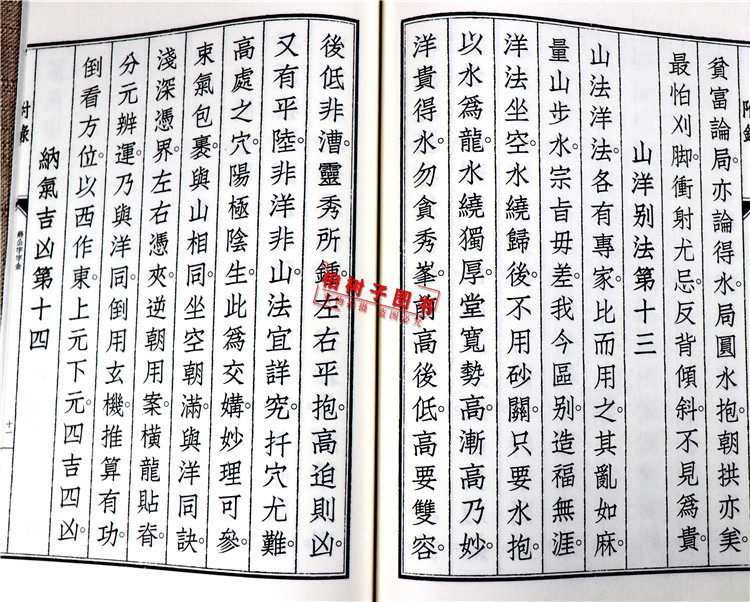 貧富論局。亦論得水。局圓水抱。朝拱亦矣。
最怕刈脚。衝射尤忌。反背傾斜。不見爲貴。
山洋别法第十三
山法洋法。各有專家。比而用之。其亂如麻。
量山步水。宗旨毋差。我今區别。造福無涯。
洋法坐空。水繞歸後。不用砂關。只要水抱。
以水爲龍。水繞獨厚。堂寬勢高。漸高乃妙。
洋貴得水。勿貪秀峯。前高後低。高要雙容。
後低非漕。靈秀所鍾。左右平抱。高迫則凶。
又有平陸。非洋非山。法宜詳究。扦穴尤難。
高處之穴。陽極陰生。此爲交媾。妙理可參。
束氣包裹。與山相同。坐空朝滿。與洋同訣。
淺深憑界。左右憑夾。逆朝用案。橫龍貼脊。
分元辨運。乃與洋同。倒用玄機。推算有功。
倒看方位。以西作東。上元下元。四吉四凶。
納氣吉凶第十四
附錄
十一
柏树子图书